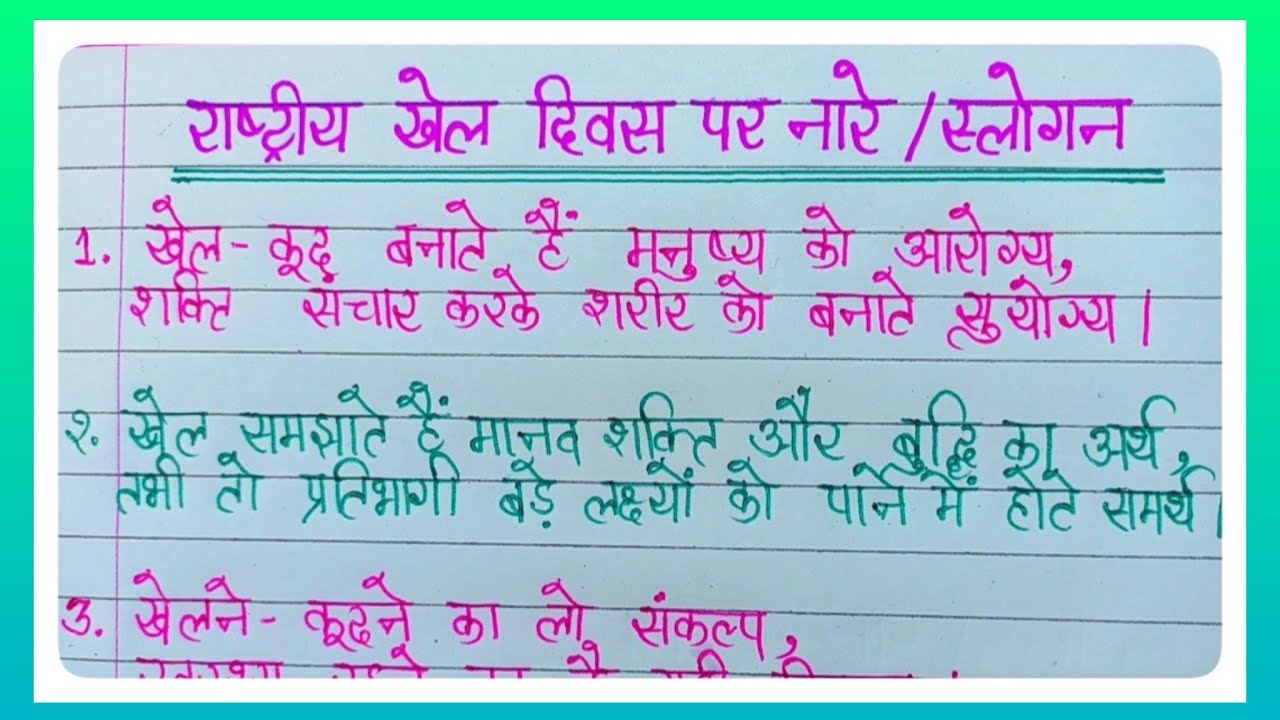 राष्ट्रीय खेल दिवस पर नारे / स्लोगन
1. खेल - कूद बनाते हैं मनुष्य को आरोग्य,
शक्ति संचार करके शरीर को बनाते सुयोग्य।
२. खेल समझाते हैं मानव शक्ति और बुद्धि का अर्थ,
तभी तो प्रतिभागी बड़े लक्ष्यों को पाने में होते समर्थ।
3. खेलने - कूदने का लो संकल्प,